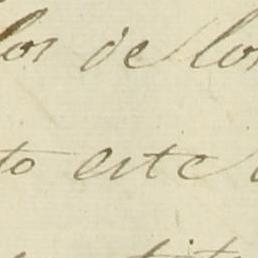 los de los
to este